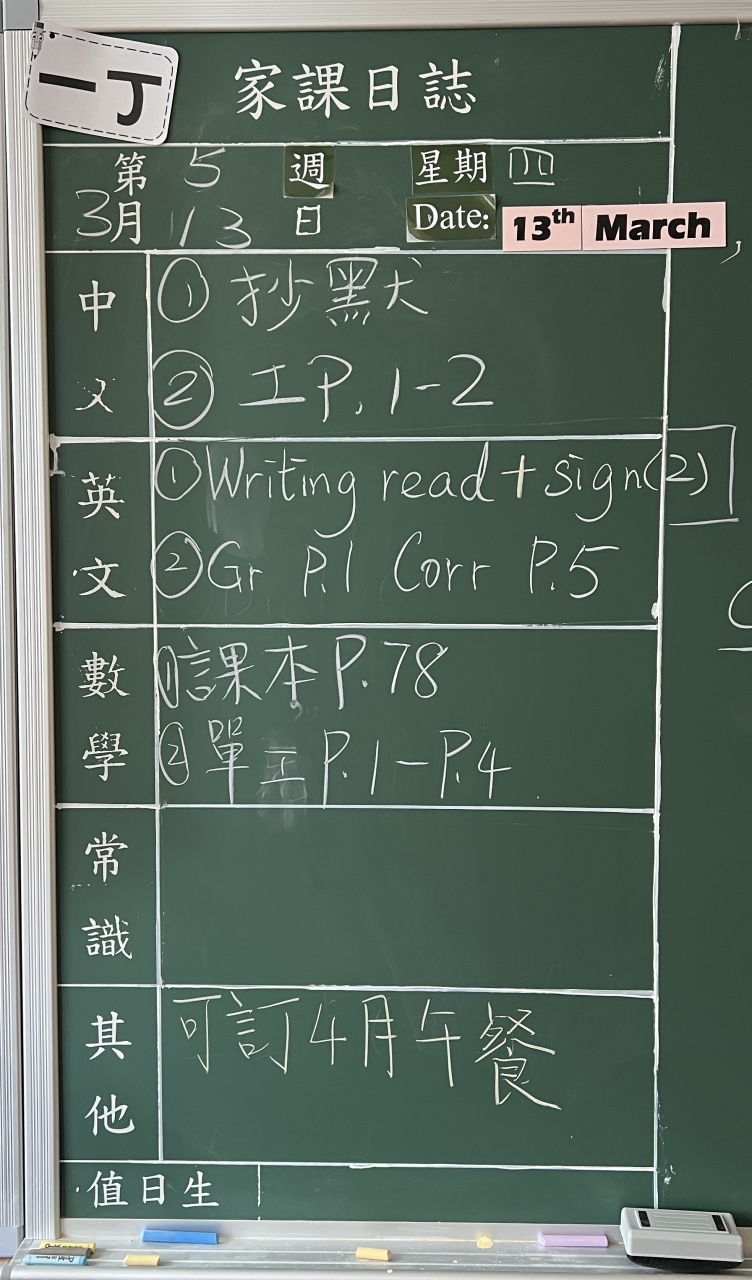 一丁
家課日誌
第 5 週 星期 四
3月 13 日 Date: 13th March
中文
① 抄默
② 工P. 1-2
英文
① Writing read + sign(2)
② Gr P.1 Corr P.5
數學
① 課本 P.78
② 單工 P.1-P.4
常識
其他
可訂4月午餐
值日生